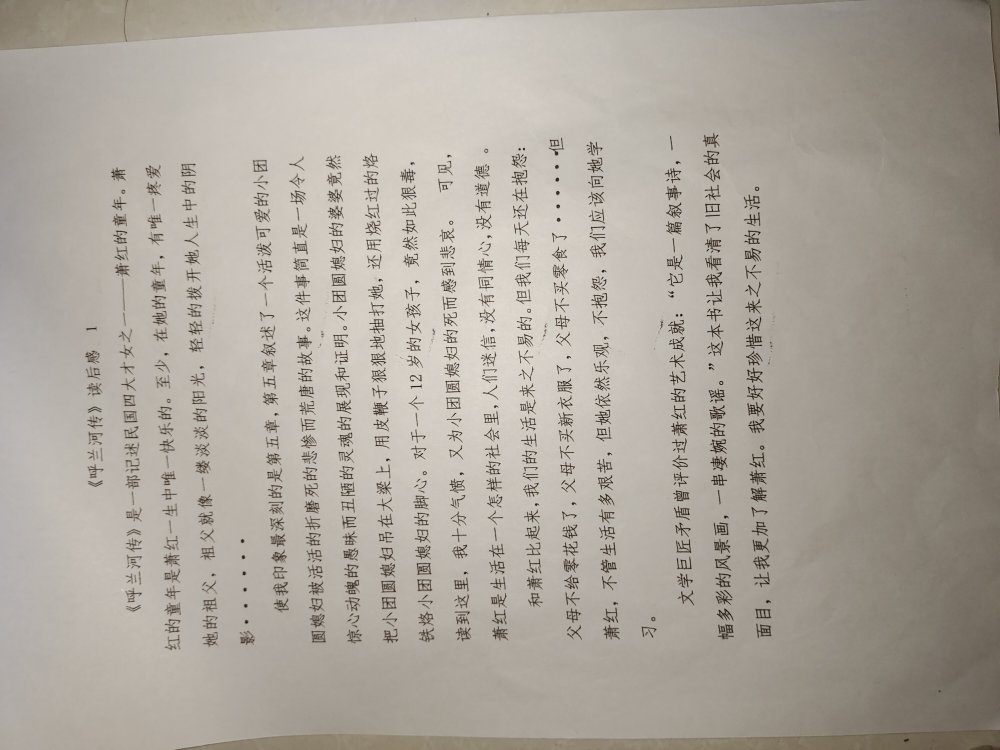 《呼兰河传》读后感 1
《呼兰河传》是一部记述民国四大才女之一——萧红的童年。萧
红的童年是萧红一生中唯一快乐的。至少，在她的童年，有唯一疼爱
她的祖父，祖父就像一缕淡淡的阳光，轻轻的拨开她人生中的阴
影·······
使我印象最深刻的是第五章，第五章叙述了一个活泼可爱的小团
圆媳妇被活活的折磨死的悲惨而荒唐的故事。这件事简直是一场令人
惊心动魄的愚昧而丑陋的灵魂的展现和证明。小团圆媳妇的婆婆竟然
把小团圆媳妇吊在大梁上，用皮鞭子狠狠地抽打她，还用烧红过的烙
铁烙小团圆媳妇的脚心。对于一个12岁的女孩子，竟然如此狠毒，
读到这里，我十分气愤，又为小团圆媳妇的死而感到悲哀。 可见，
萧红是生活在一个怎样的社会里，人们迷信，没有同情心，没有道德。
和萧红比起来，我们的生活是来之不易的。但我们每天还在抱怨：
父母不给零花钱了，父母不买新衣服了，父母不买零食了·······但
萧红，不管生活有多艰苦，但她依然乐观，不抱怨，我们应该向她学
习。
文学巨匠矛盾曾评价过萧红的艺术成就：“它是一篇叙事诗，一
幅多彩的风景画，一串凄婉的歌谣。”这本书让我看清了旧社会的真
面目，让我更加了解萧红。我要好好珍惜这来之不易的生活。